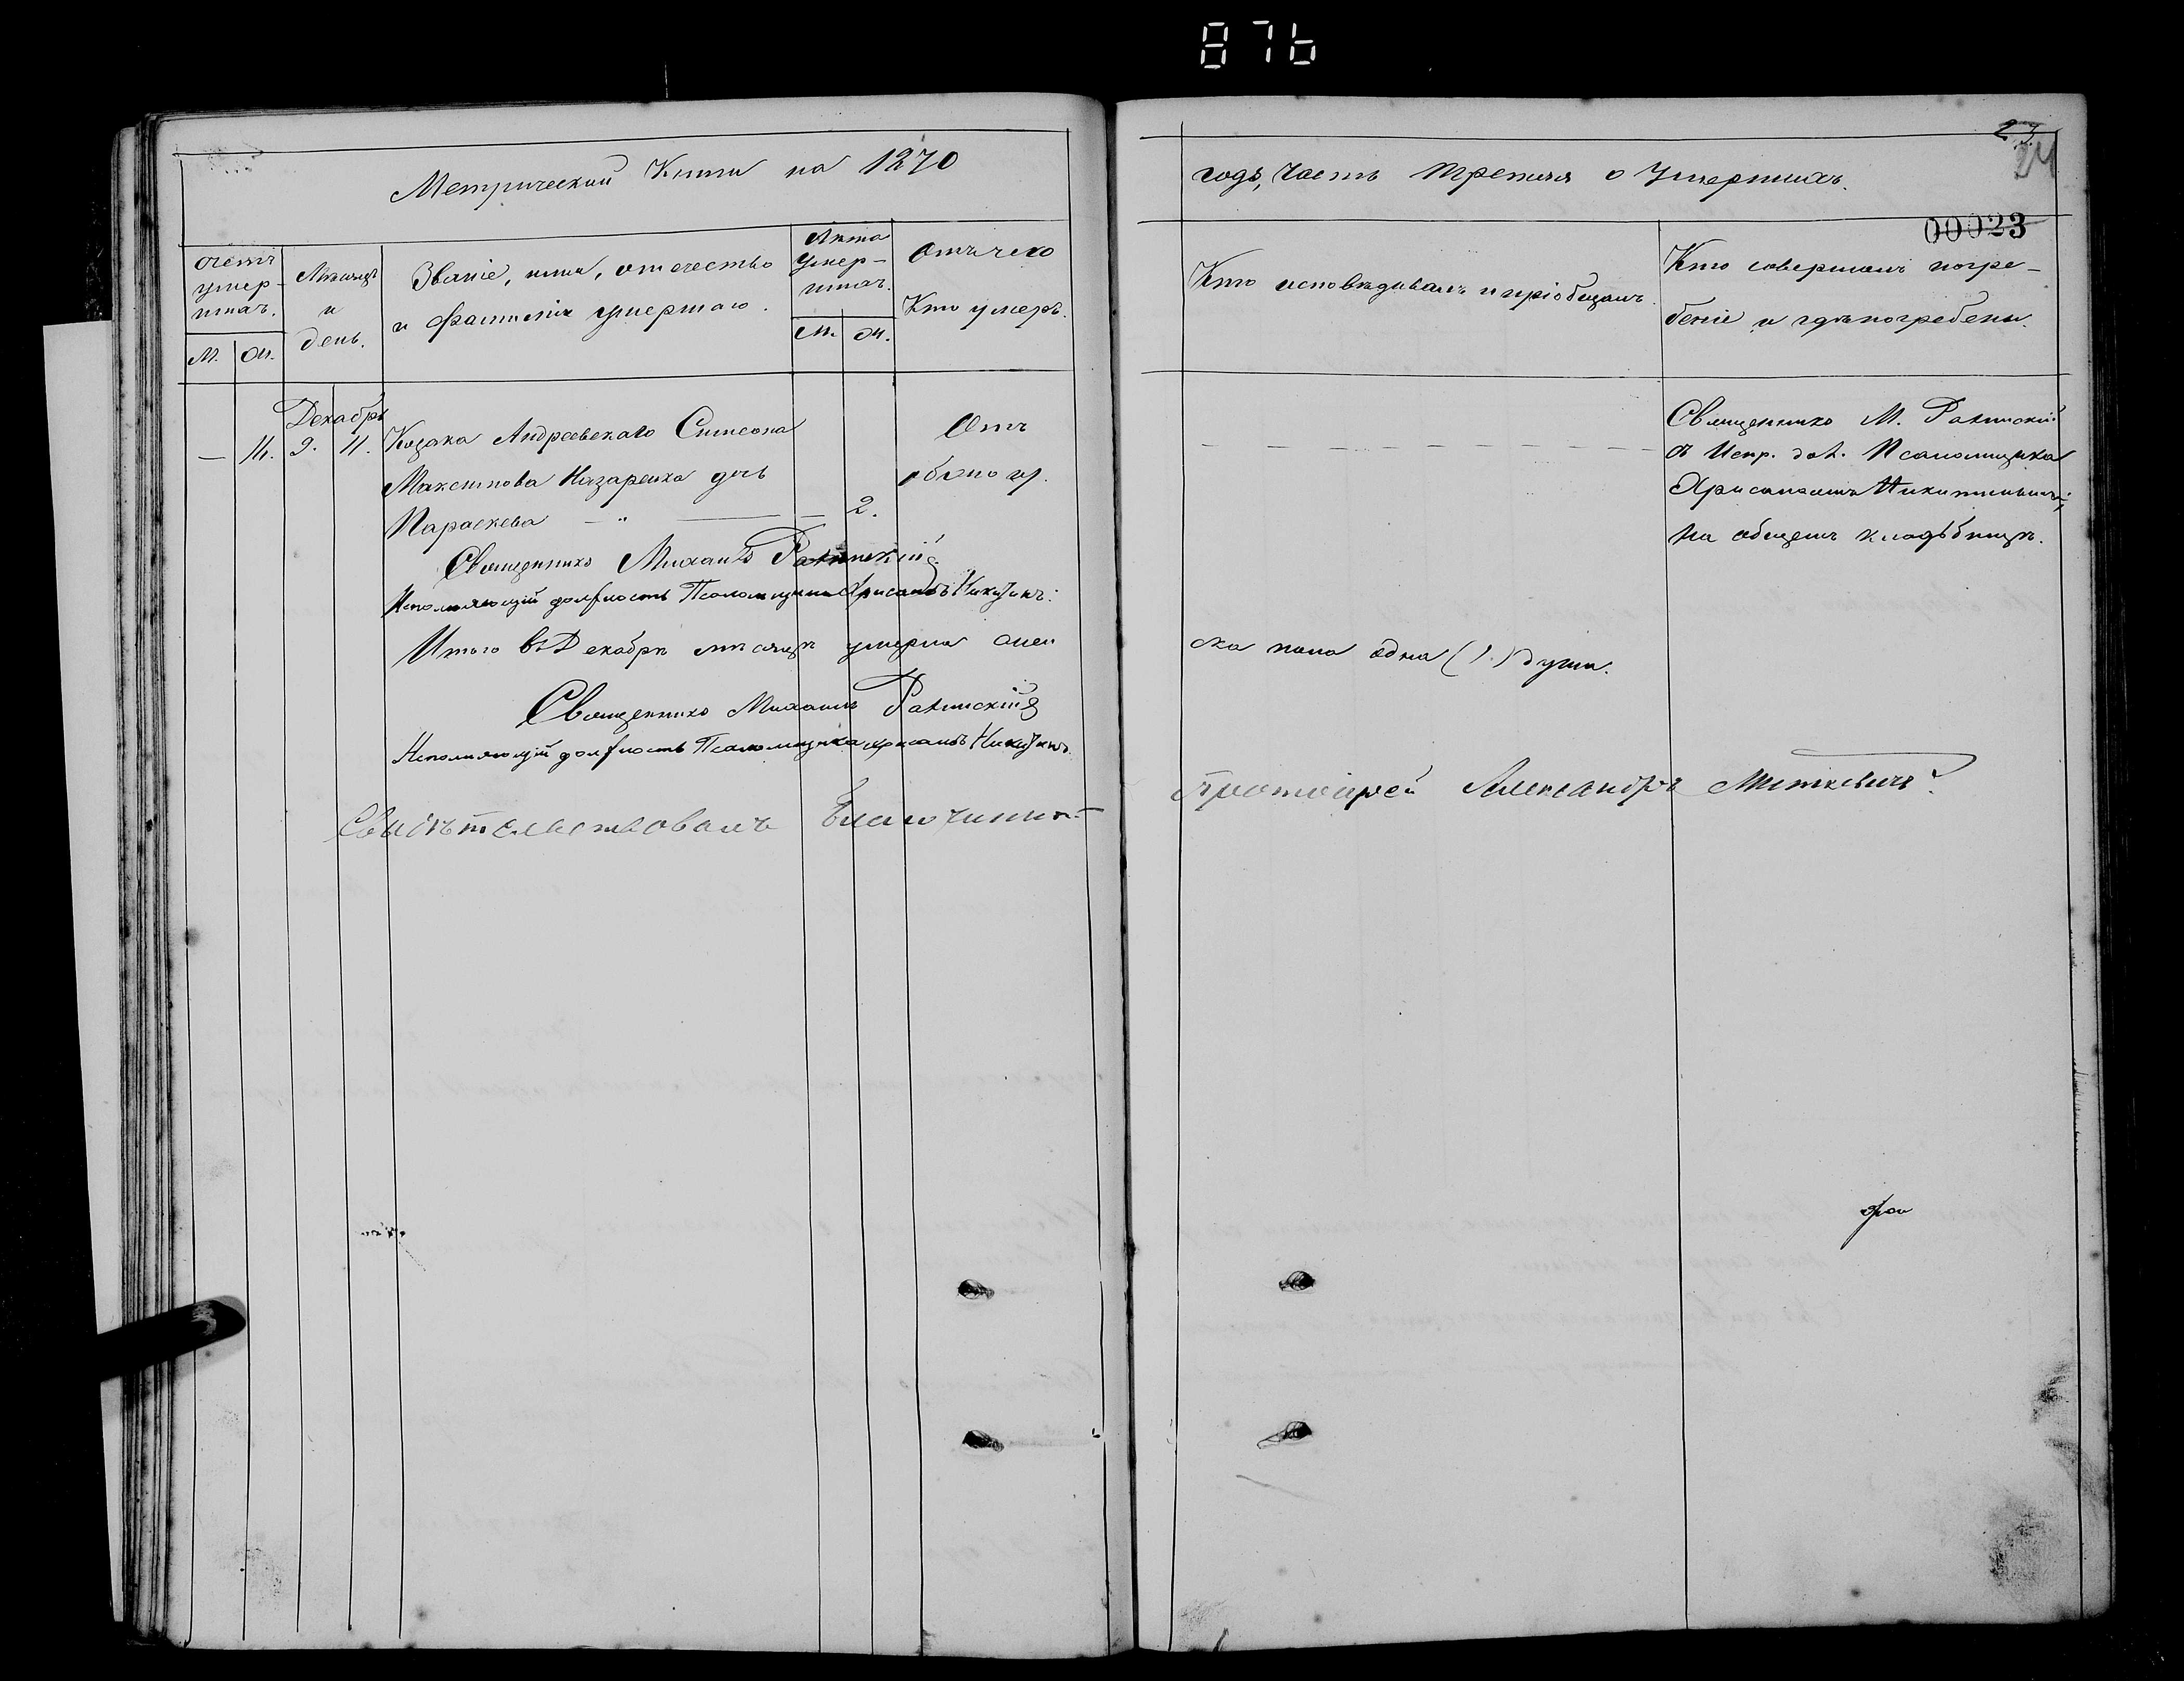 876
Метрической Книги на 1870
годъ, Часть Третья о Умершихъ.
23
24
00023
Счетъ умер-шихъ.
М. Ж.
Мѣсяцъ и день.
Званіе, имя, отчество и фамилія умершаго.
Лѣта умер-шихъ.
М. Ж.
Отъ чего
Кто умеръ.
Кто исповѣдывалъ и пріобщалъ.
Кто совершалъ погре-
беніе и гдѣ погребены.
Декабрь
— 14. 9. 11. Козака Андреевскаго Симеона
Максимова Назаренка дочь
Параскева — " — — 2.
Отъ
Священникъ М. Ракинскій
съ Испр. дол. Псаломщика
Хрисанѳомъ Никитинымъ,
На общемъ кладбищѣ.
Священникъ Михаилъ Ракинскій
Исполняющій должность Псаломщика Хрисанѳъ Никитинъ.
Итого въ Декабрѣ мѣсяцѣ умерла жен
ска пола одна (1.) душа.
Священникъ Михаилъ Ракинскій
Исполняющій должность Псаломщика Хрисанѳъ Никитинъ.
Свидѣтельствовалъ Благочинный
Протоіерей Александръ Миткевичъ.